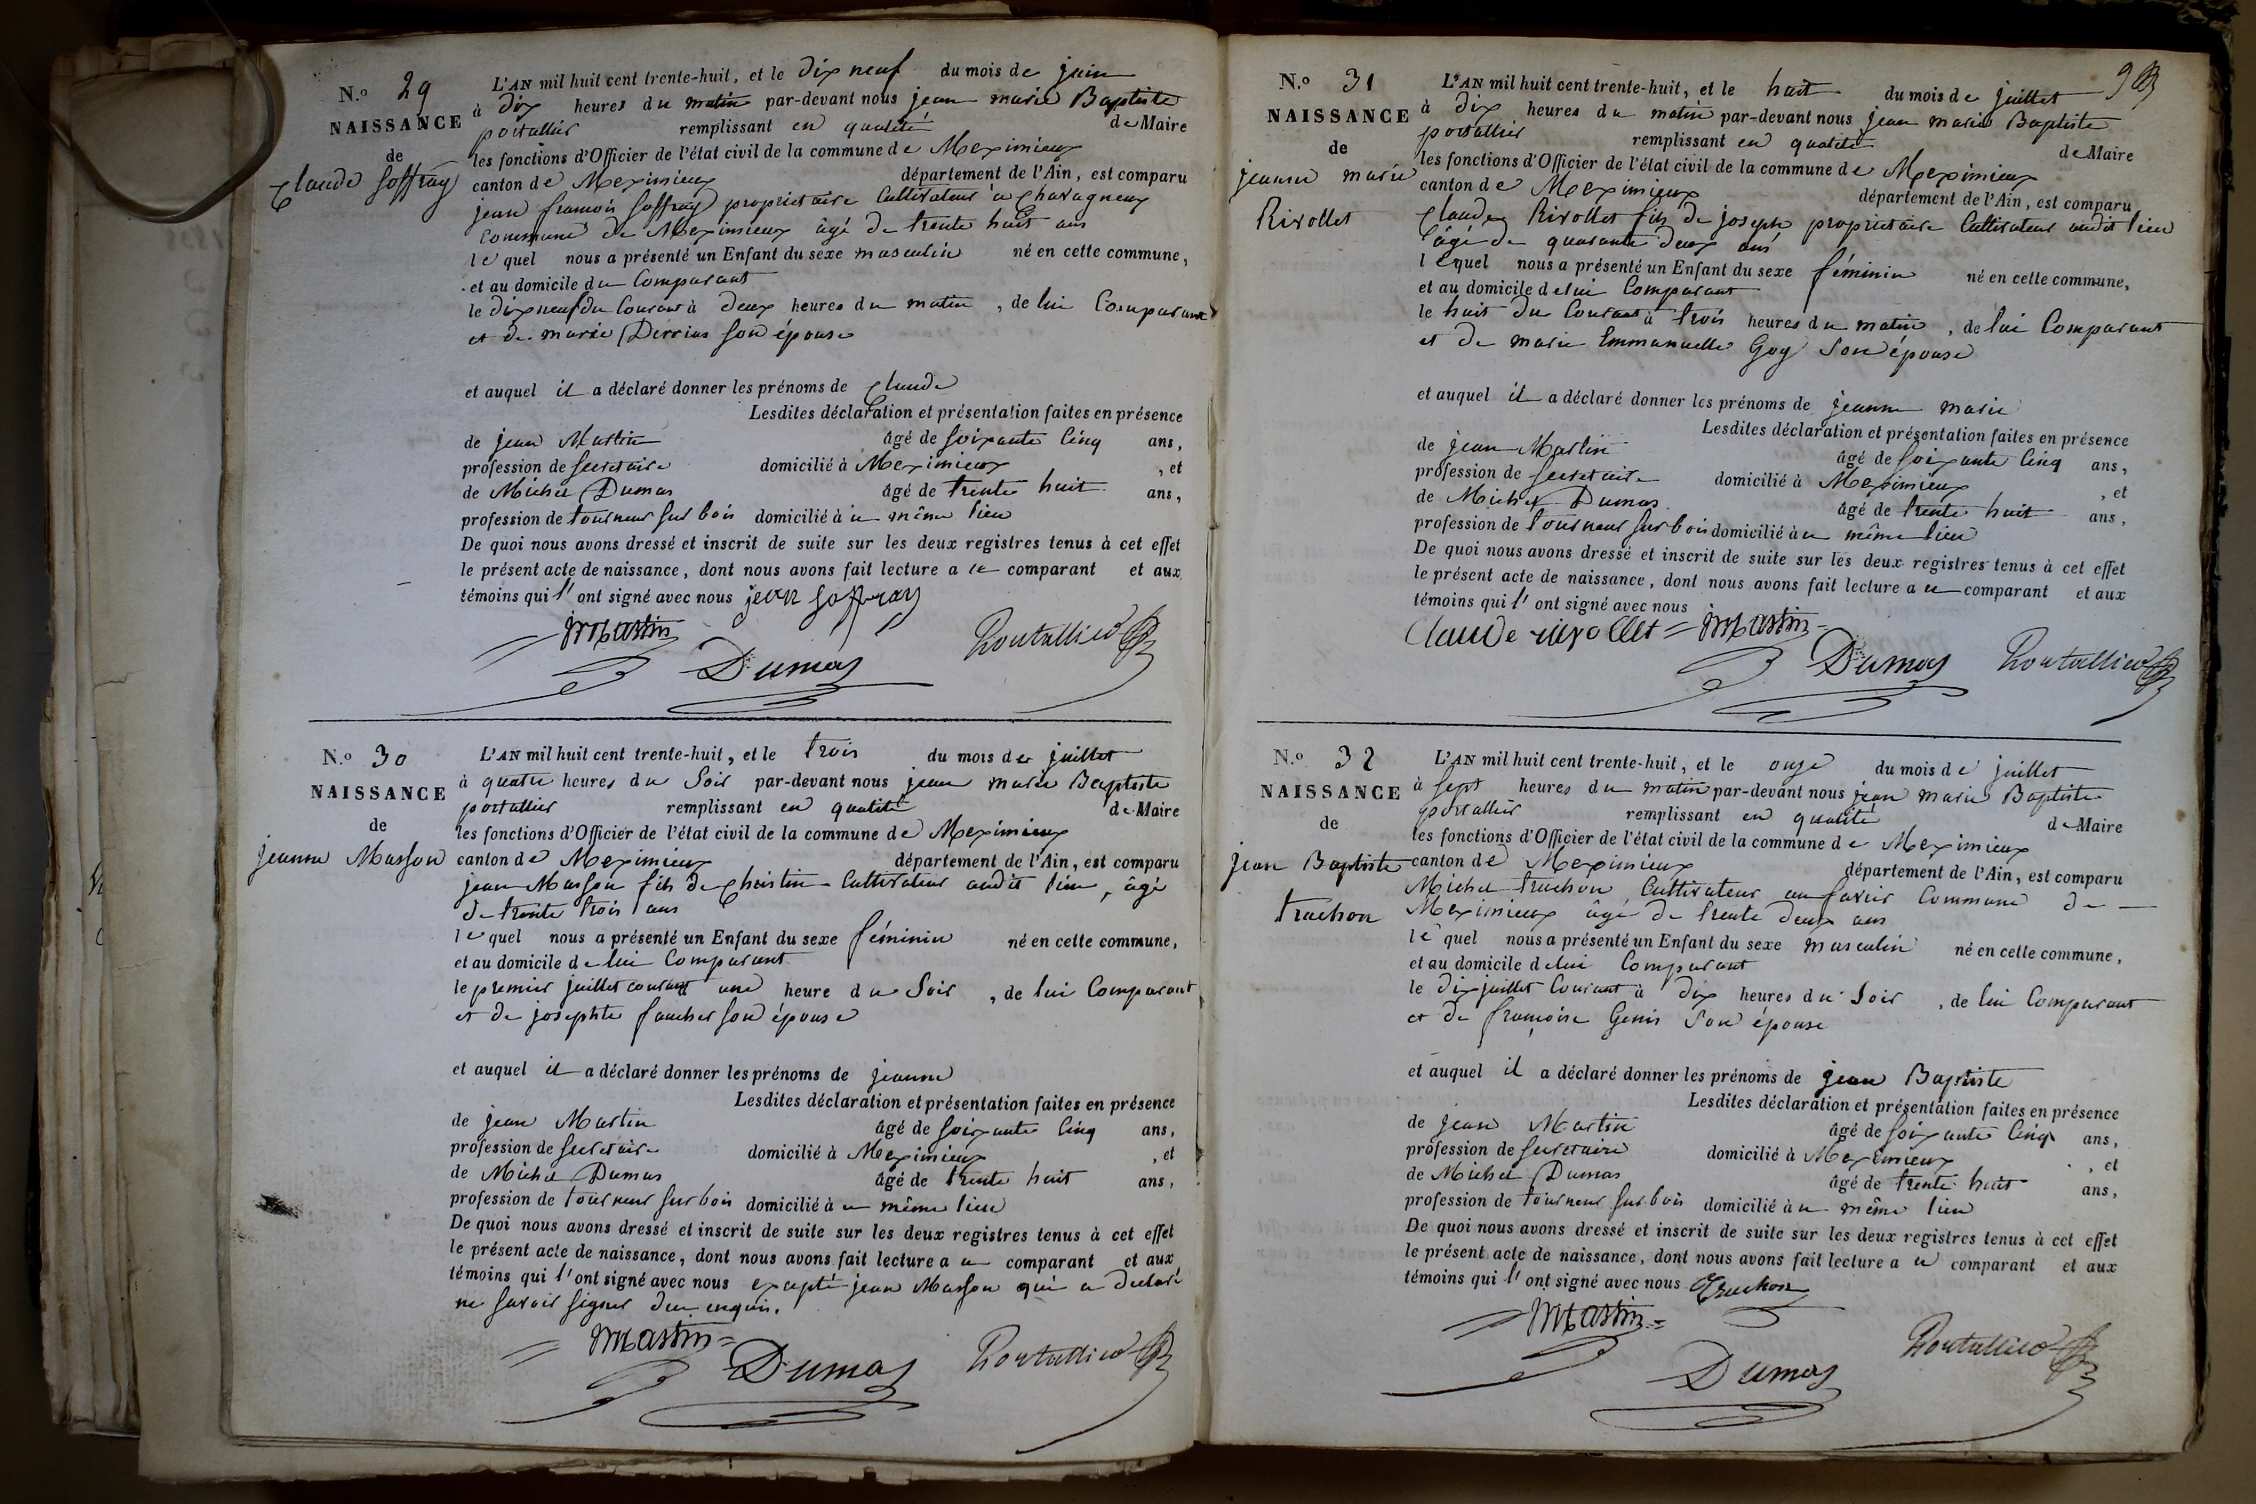 N.º 29
NAISSANCE
de
Claude Joffray
L'AN mil huit cent trente-huit, et le dix neuf du mois de juin
à dix heures du matin par-devant nous jean marie Baptiste
portallier remplissant en qualité de Maire
les fonctions d'Officier de l'état civil de la commune de Meximieux
canton de Meximieux département de l'Ain, est comparu
jean francois Joffray proprietaire Cultivateur à Chavagneux
Commune de Meximieux âgé de trente huit ans
lequel nous a présenté un Enfant du sexe masculin né en cette commune,
et au domicile du Comparant
le dix neuf du Courant à deux heures du matin, de lui Comparant
et de marie Derrias son épouse
et auquel il a déclaré donner les prénoms de Claude
Lesdites déclaration et présentation faites en présence
de jean Martin âgé de soixante Cinq ans,
profession de secretaire domicilié à Meximieux, et
de Michel Dumas âgé de trente huit ans,
profession de tourneur sur bois domicilié à ce même lieu
De quoi nous avons dressé et inscrit de suite sur les deux registres tenus à cet effet
le présent acte de naissance, dont nous avons fait lecture a ce comparant et aux
témoins qui l' ont signé avec nous jean joffray
Martin
Dumas Portallier
N.º 30
NAISSANCE
de
jeanne Masson
L'AN mil huit cent trente-huit, et le trois du mois de juillet
à quatre heures du Soir par-devant nous jean marie Baptiste
portallier remplissant en qualité de Maire
les fonctions d'Officier de l'état civil de la commune de Meximieux
canton de Meximieux département de l'Ain, est comparu
jean Masson fils de Christin Cultivateur audit lieu, âgé
de trente trois ans
lequel nous a présenté un Enfant du sexe féminin né en cette commune,
et au domicile de lui Comparant
le premier juillet courant une heure du Soir, de lui Comparant
et de josephte faucher son épouse
et auquel il a déclaré donner les prénoms de jeanne
Lesdites déclaration et présentation faites en présence
de jean Martin âgé de soixante Cinq ans,
profession de secretaire domicilié à Meximieux, et
de Michel Dumas âgé de trente huit ans,
profession de tourneur sur bois domicilié à ce même lieu
De quoi nous avons dressé et inscrit de suite sur les deux registres tenus à cet effet
le présent acte de naissance, dont nous avons fait lecture a ce comparant et aux
témoins qui l' ont signé avec nous excepté jean Masson qui a declaré
ne savoir signer du enquis.
Martin
Dumas Portallier
9
N.º 31
NAISSANCE
de
jeanne marie
Rivollet
L'AN mil huit cent trente-huit, et le huit du mois de juillet
à dix heures du matin par-devant nous jean marie Baptiste
portallier remplissant en qualité de Maire
les fonctions d'Officier de l'état civil de la commune de Meximieux
canton de Meximieux département de l'Ain, est comparu
Claude Rivollet fils de joseph proprietaire Cultivateur audit lieu
âgé de quarante deux ans
lequel nous a présenté un Enfant du sexe féminin né en cette commune,
et au domicile de lui Comparant
le huit du Courant à trois heures du matin, de lui Comparant
et de marie Emmanuelle Goy Son épouse
et auquel il a déclaré donner les prénoms de jeanne marie
Lesdites déclaration et présentation faites en présence
de jean Martin âgé de soixante Cinq ans,
profession de secretaire domicilié à Meximieux, et
de Michel Dumas âgé de trente huit ans,
profession de tourneur sur bois domicilié à ce même lieu
De quoi nous avons dressé et inscrit de suite sur les deux registres tenus à cet effet
le présent acte de naissance, dont nous avons fait lecture a ce comparant et aux
témoins qui l' ont signé avec nous
Claude rivollet Martin
Dumas Portallier
N.º 32
NAISSANCE
de
jean Baptiste
truchon
L'AN mil huit cent trente-huit, et le onze du mois de juillet
à sept heures du matin par-devant nous jean marie Baptiste
portallier remplissant en qualité de Maire
les fonctions d'Officier de l'état civil de la commune de Meximieux
canton de Meximieux département de l'Ain, est comparu
Michel truchon Cultivateur au Commune de
Meximieux âgé de trente deux ans
lequel nous a présenté un Enfant du sexe masculin né en cette commune,
et au domicile de lui Comparant
le dix juillet Courant à dix heures du Soir, de lui Comparant
et de françoise Genis Son épouse
et auquel il a déclaré donner les prénoms de jean Baptiste
Lesdites déclaration et présentation faites en présence
de jean Martin âgé de soixante Cinq ans,
profession de secretaire domicilié à Meximieux, et
de Michel Dumas âgé de trente huit ans,
profession de tourneur sur bois domicilié à ce même lieu
De quoi nous avons dressé et inscrit de suite sur les deux registres tenus à cet effet
le présent acte de naissance, dont nous avons fait lecture a ce comparant et aux
témoins qui l' ont signé avec nous Truchon
Martin
Dumas Portallier